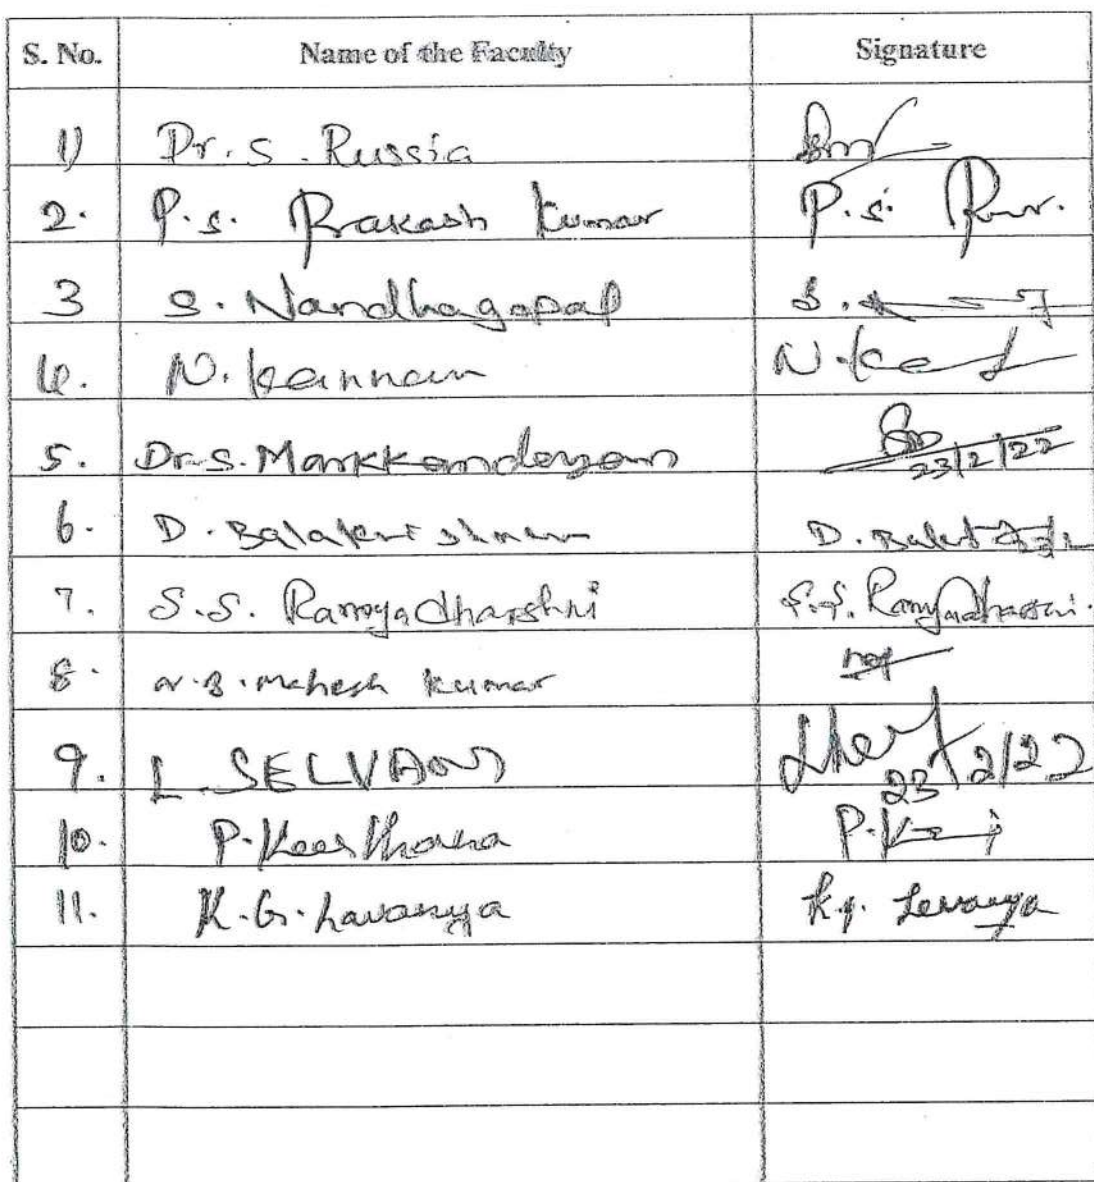 S. No. Name of the Faculty Signature
1) Dr. S. Russia
2. P.S. Prakash Kumar P.S.
3 S. Nandhagopal S.
4. N. Kannan N.
5. Dr. S. Markkandeyan 23/2/22
6. D. Balakrishnan D.
7. S.S. Ramyadharshni S.S. Ramyadharshni.
8. N.B. Mahesh Kumar
9. L. SELVAM 23/2/22
10. P. Keerthana P.
11. K.G. Lavanya K.G. Lavanya